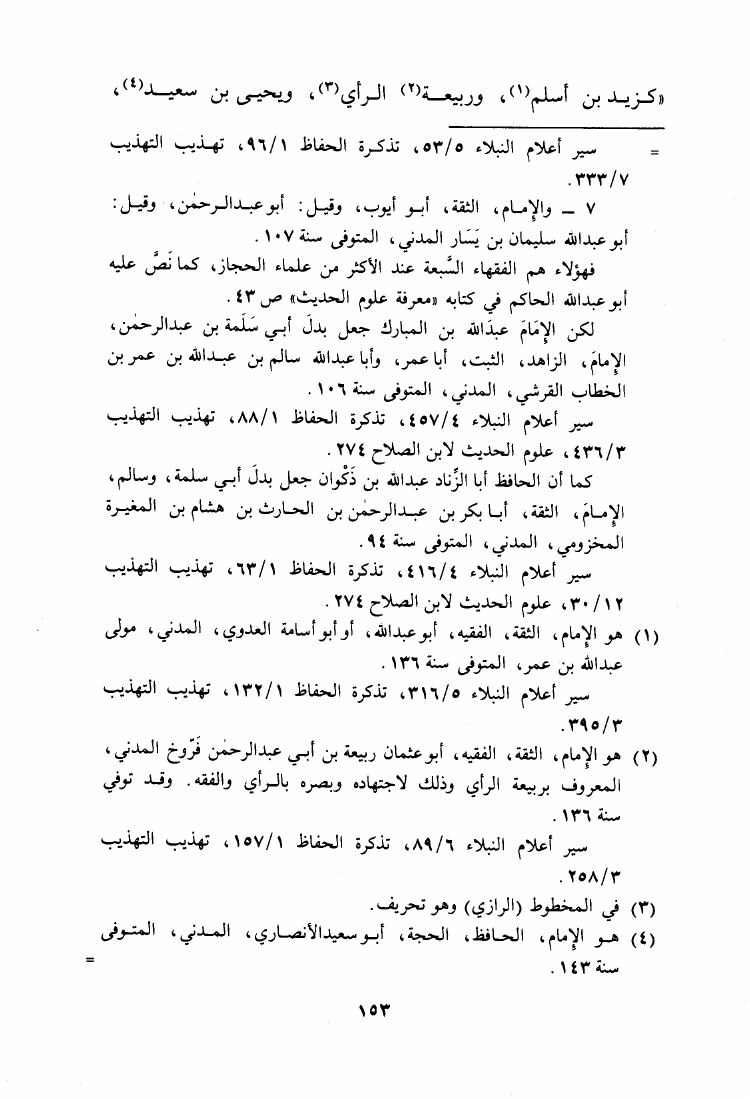 «كـزيـد بن أسلم(١)، وربيعـة(٢) الرأي(٣)، ويحيى بن سعيـد(٤)،
= سير أعلام النبلاء ٥٣/٥، تذكرة الحفاظ ٩٦/١، تهذيب التهذيب
٣٣٣/٧.
٧ ـ والإمـام، الثقة، أبـو أيوب، وقيل: أبو عبدالرحمٰن، وقيل:
أبو عبدالله سليمان بن يَسَار المدني، المتوفى سنة ١٠٧.
فهؤلاء هم الفقهاء السَّبعة عند الأكثر من علماء الحجاز، كما نَصَّ عليه
أبو عبدالله الحاكم في كتابه «معرفة علوم الحديث» ص ٤٣.
لكن الإمَامَ عبدَالله بن المبارك جعل بدلَ أبـي سَلَمة بن عبدالرحمٰن،
الإمامَ، الزاهد، الثبت، أبا عمر، وأبا عبدالله سالم بن عبـدالله بن عمر بن
الخطاب القرشي، المدني، المتوفى سنة ١٠٦.
سير أعلام النبلاء ٤٥٧/٤، تذكرة الحفاظ ٨٨/١، تهذيب التهذيب
٤٣٦/٣، علوم الحديث لابن الصلاح ٢٧٤.
كما أن الحافظ أبا الزِّناد عبدالله بن ذَكْوان جعل بدلَ أبـي سلمة، وسالم،
الإمـامَ، الثقة، أبـا بكر بن عبـدالرحمٰن بن الحـارث بن هشام بن المغيـرة
المخزومي، المدني، المتوفى سنة ٩٤.
سير أعلام النبلاء ٤١٦/٤، تذكرة الحفاظ ٦٣/١، تهذيب التهذيب
٣٠/١٢، علوم الحديث لابن الصلاح ٢٧٤.
(١) هو الإمام، الثقة، الفقيه، أبو عبدالله، أو أبو أسامة العدوي، المدني، مولى
عبدالله بن عمر، المتوفى سنة ١٣٦.
سير أعلام النبلاء ٣١٦/٥، تذكرة الحفاظ ١٣٢/١، تهذيب التهذيب
٣٩٥/٣.
(٢) هو الإمام، الثقة، الفقيه، أبو عثمان ربيعة بن أبـي عبدالرحمٰن فَرّوخ المدني،
المعروف بربيعة الرأي وذلك لاجتهاده وبصره بالـرأي والفقه. وقـد توفي
سنة ١٣٦.
سير أعلام النبلاء ٨٩/٦، تذكرة الحفاظ ١٥٧/١، تهذيب التهذيب
٢٥٨/٣.
(٣) في المخطوط (الرازي) وهو تحريف.
(٤) هـو الإمام، الحـافظ، الحجة، أبـو سعيد الأنصـاري، المـدني، المتـوفى
سنة ١٤٣. =
١٥٣